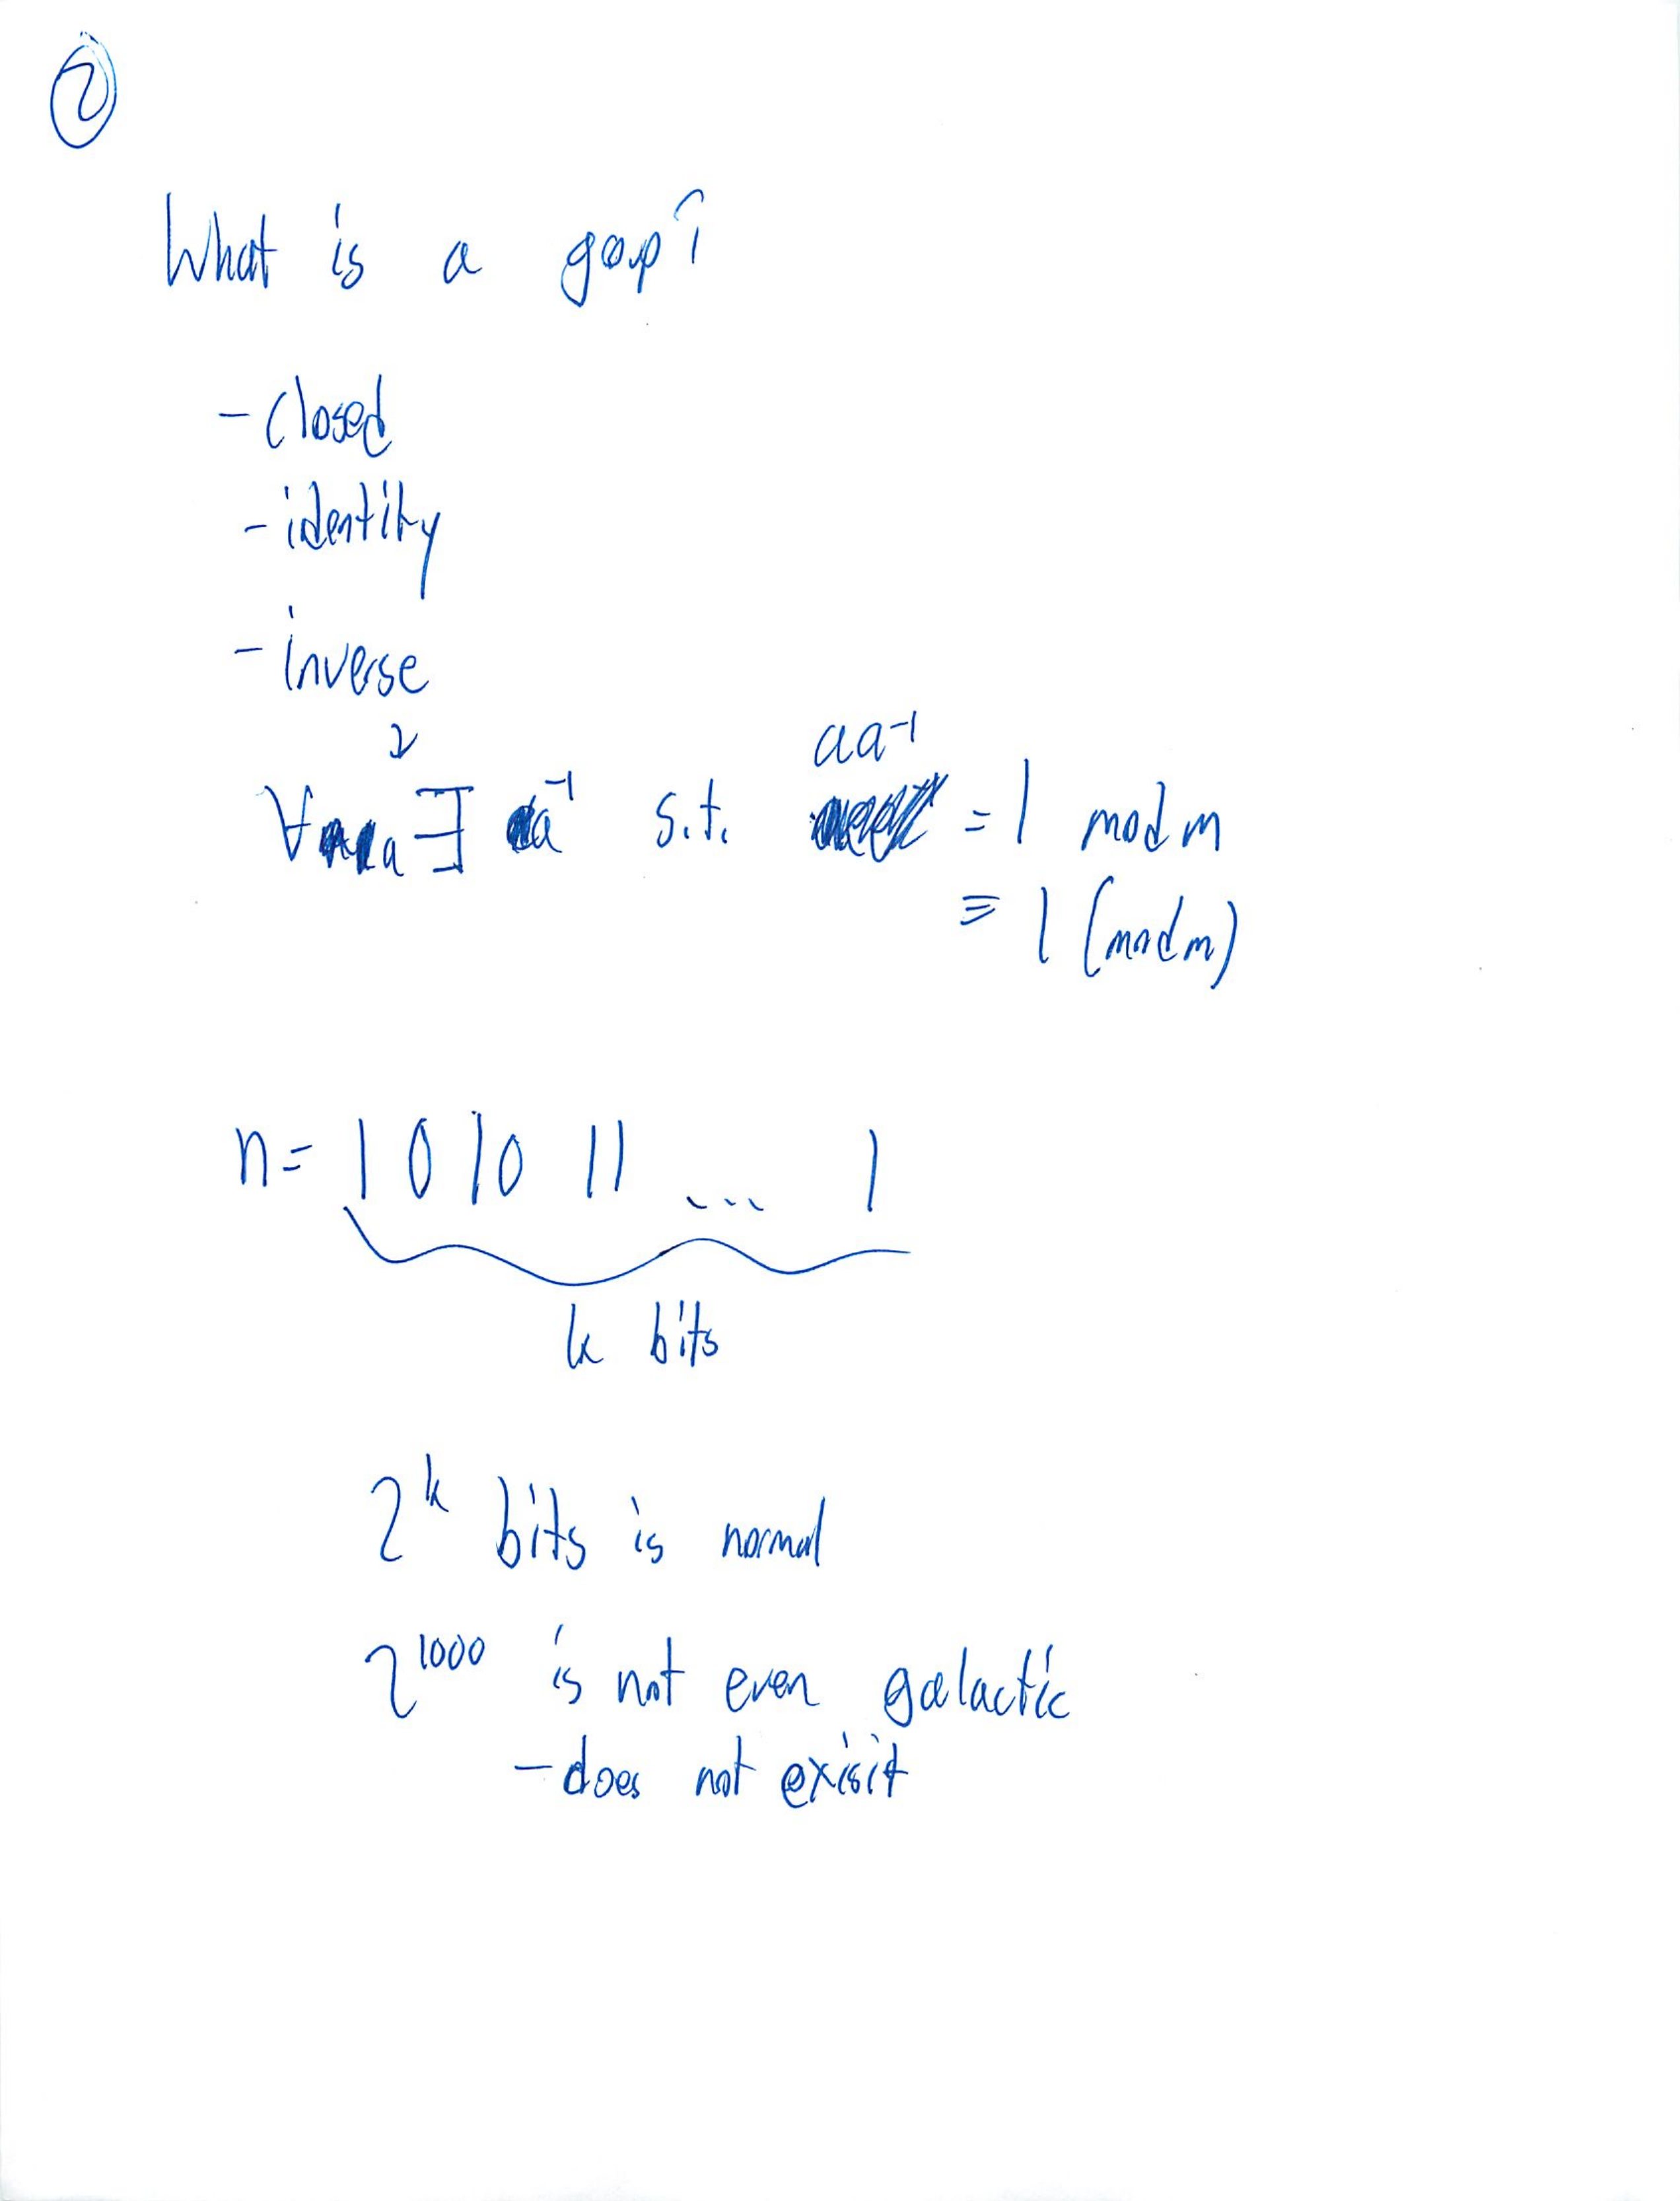 2
What is a goup?
- closed
- identity
- inverse
aa⁻¹
∀a ∃ a⁻¹ s.t. = 1 mod m
≡ 1 (mod m)
n = 1 0 1 0 1 1 ... 1
k bits
2ᵏ bits is normal
2¹⁰⁰⁰ is not even galactic
- does not exisit